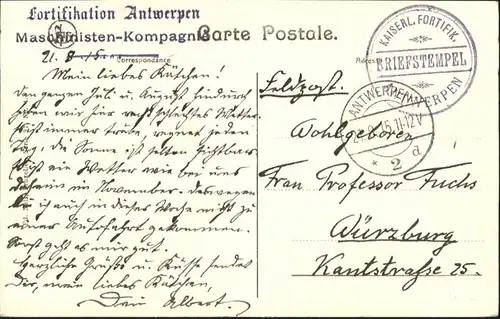 Fortifikation Antwerpen
Maschinisten-Kompagnie
Carte Postale.
Correspondance
21. 8. 15.
KAISERL. FORTIFIK.
BRIEFSTEMPEL
ANTWERPEN
ANTWERPEN
11-12V
* 2 d
Mein liebes Kätchen!
Den ganzen Juli u. August hindurch
haben wir hier recht schlechtes Wetter.
Fast immer trübe, regnet jeden
Tag. Die Sonne ist selten sichtbar.
Es ist ein Wetter wie bei uns
daheim im November. Deswegen
bin ich auch in dieser Woche nicht zu
einer Autofahrt gekommen.
Sonst geht es mir gut.
Herzliche Grüße u. Küsse sendet
Dir, mein liebes Kätchen,
Dein Albert.
Feldpost.
Wohlgeboren
Frau Professor Fuchs
Würzburg
Kantstrasse 25.